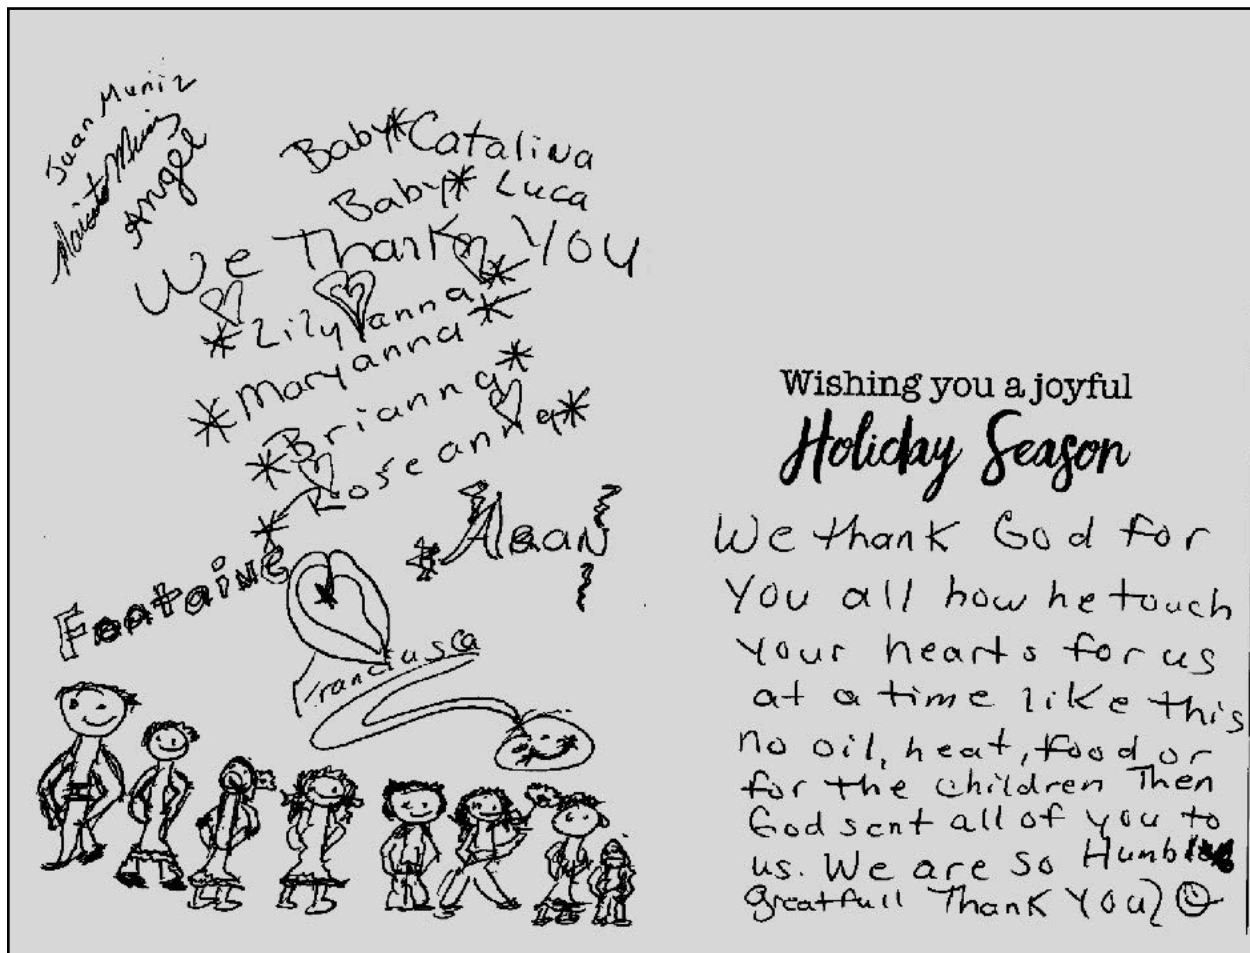 Juan Muniz
Angel
Baby*Catalina
Baby* Luca
We Thank YOU
*Lilyanna*
*Maryanna*
*Brianna*
*Roseanna*
*Alean
Fontaine
Franciusca
Wishing you a joyful
Holiday Season
We thank God for
You all how he touch
your hearts for us
at a time like this
no oil, heat, food or
for the children Then
God sent all of you to
us. We are so Humble
greatfull Thank YOU